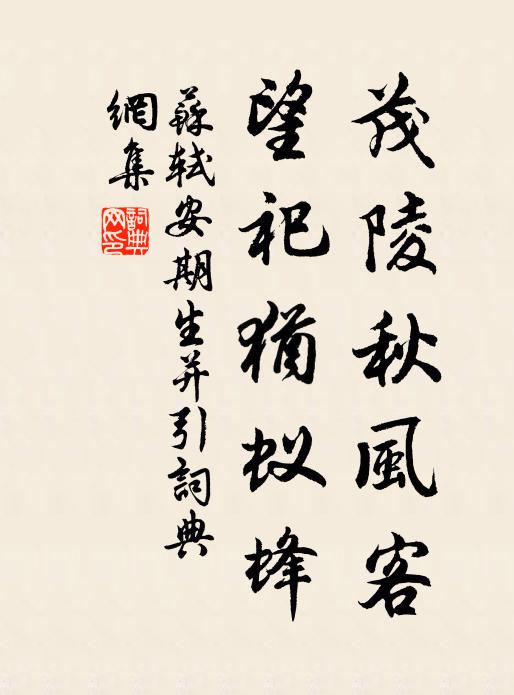 茂陵秋風客
望祀猶蚁蜂
蘇軾安期生并引詞典
網集
詞典
网印